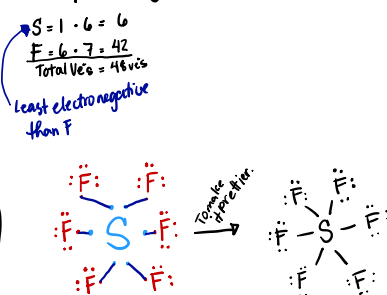 S = 1 · 6 = 6
F = 6 · 7 = 42
Total Ve's = 48 ve's
Least electronegative
than F
To make
it prettier.
F F F
F S F F S F
F F F F